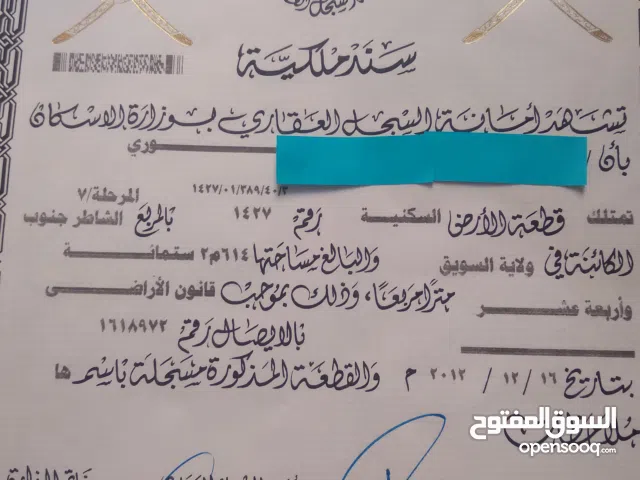 سند ملكية
تشهد أمانة السجل العقاري بوزارة الاسكان
بأن / ـوري
١٤٢٧/٠١/٣٨٩/٤٠/٢ المرحلة/٧
تمتلك قطعة الأرض السكنية رقم ١٤٢٧ بالمربع الشاطر جنوب
الكائنة في ولاية السويق والبالغ مساحتها ٦١٤م٢ ستمائة
وأربعة عشر متراً مربعا، وذلك بموجب قانون الأراضى
بالايصال رقم ١٦١٨٩٧٢
بتاريخ ١٦ / ١٢ / ٢٠١٢ م والقطعة المذكورة مسجلة باسم ها
ملاحظات
السوق المفتوح
opensooq.com